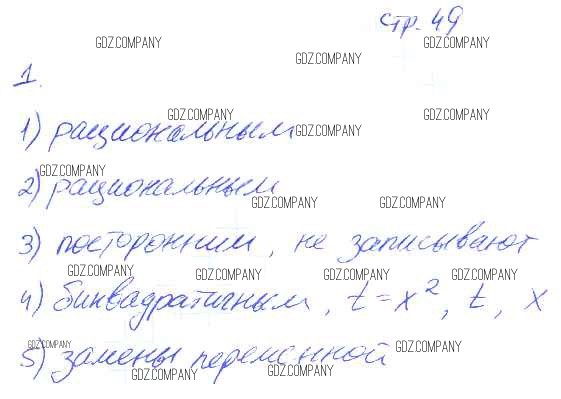 стр. 49
GDZ.COMPANY GDZ.COMPANY GDZ.COMPANY
1.
GDZ.COMPANY GDZ.COMPANY GDZ.COMPANY
1) рациональным
GDZ.COMPANY
2) рациональным
GDZ.COMPANY GDZ.COMPANY
3) посторонним, не записывают
GDZ.COMPANY GDZ.COMPANY GDZ.COMPANY GDZ.COMPANY
4) биквадратичным, t = x², t, x
GDZ.COMPANY GDZ.COMPANY
5) замены переменной
GDZ.COMPANY GDZ.COMPANY